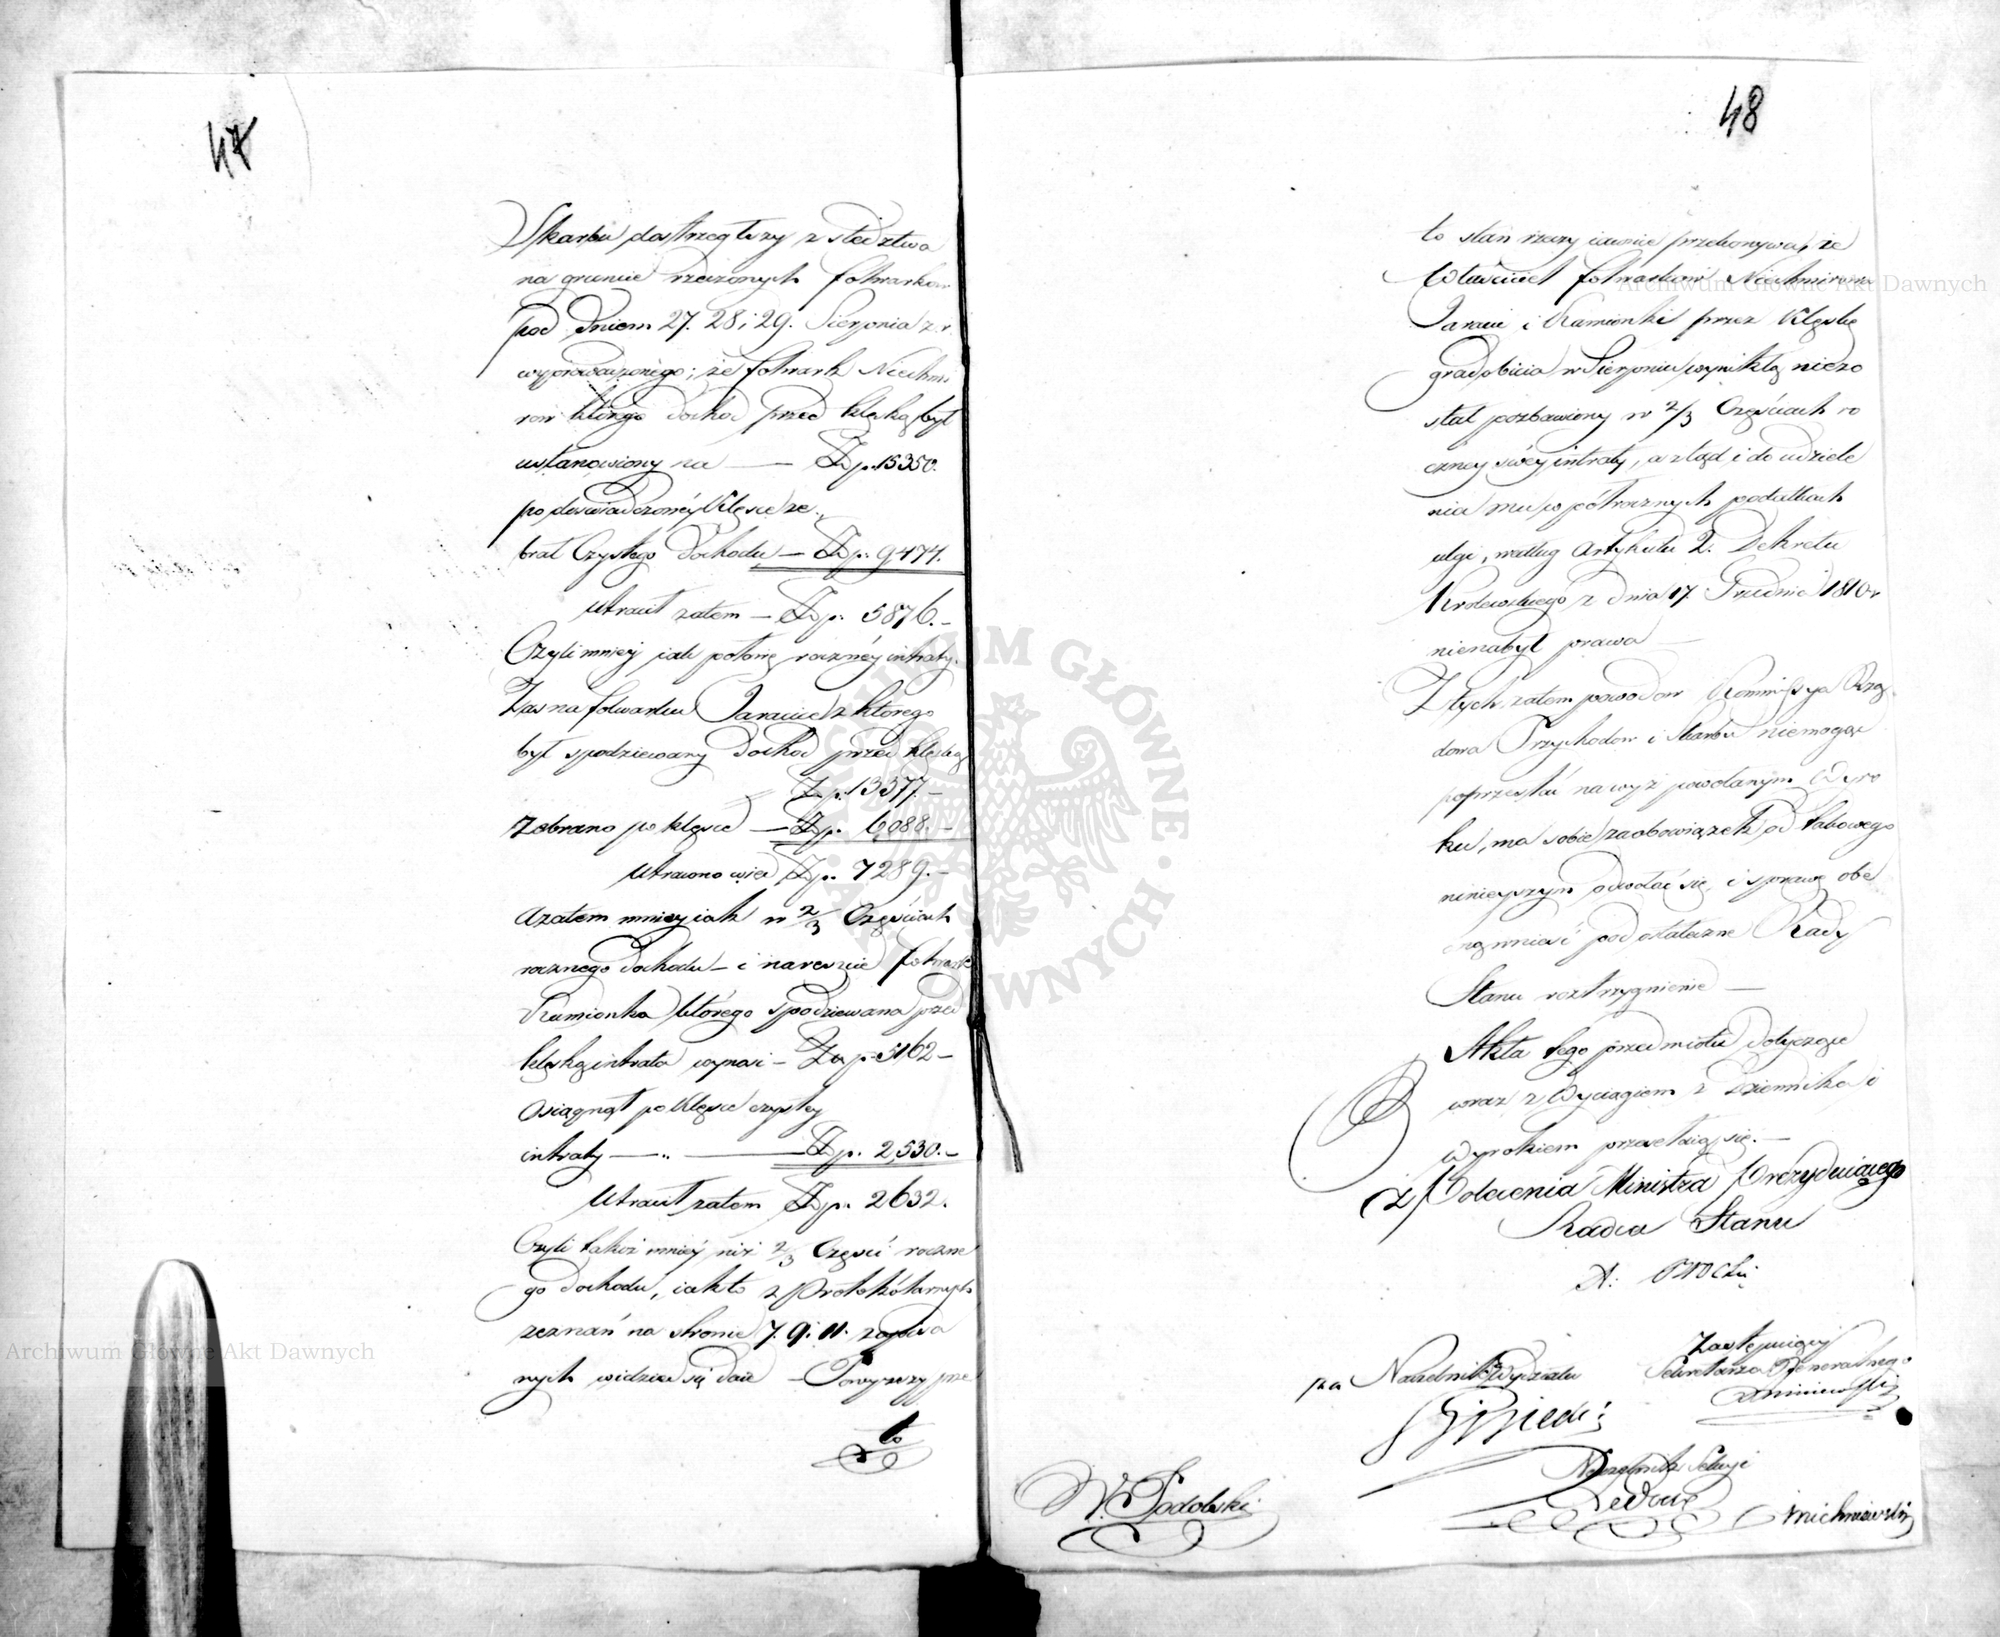 47
Skarbu dostrzegłszy z śledztwa
na gruncie rzeczonych folwarków
pod Dniem 27. 28 i 29. Sierpnia z. r.
wyprowadzonego; że folwark Niechmi
row którego dochod przed klęską był
ustanowiony na — Zł p. 15350.
po doswiadczoney Klęsce ze
brał Czystego dochodu — Zł p. 9474.
Utracił zatem — Zł p. 5876.—
Czyli mniey jak połowę roczney intraty.
Zas na folwarku Jaracice z którego
był spodziewany dochod przed klęską
Zł p. 13377.—
Zebrano po klęsce — Zł p. 6088.—
Utracono więc Zł p. 7289.—
a zatem mniey iak w 2/3 Częściach
rocznego dochodu — i nareszcie folwark
Kamionka którego spodziewana przed
klęską intrata wynosi — Zł p. 5162—
Osiągnął po Klęsce czystey
intraty — „ — Zł p. 2,530.—
Utracił zatem Zł p. 2632.
Czyli takoż mniey niż 2/3 Części roczne
go dochodu, iak to z Protokólarnych
zeznań na stronie 7. 9. 11. zapisa
nych widzieć się daie — Powyższy prze
to
48
to stan rzeczy iawnie przekonywa, że
Właściciel folwarków Niechmirowa
Jaracic i Kamionki przez Klęskę
gradobicia w Sierpniu wynikłą niezo
stał pozbawiony w 2/3 Częściach ro
czney swéy intraty, a ztąd i do udziele
nia mu w półrocznych podatkach
ulgi, według Artykułu 2. Dekretu
Krolewskiego z dnia 17 Grudnia 1810 r
nienabył prawa —
Z tych zatem powodow Kommissya Rzą
dowa Przychodow i Skarbu niemogąc
poprzestać na wyż powołanym Wyro
ku, ma sobie za obowiązek od takowego
ninieyszym odwołać się, i sprawę obe
cną wnieść pod ostateczne Rady
Stanu rozstrzygnienie —
Akta tego przedmiotu dotyczące
wraz z Wyciągiem z Dziennika i
Wyrokiem przesełaią się.—
Z Polecenia Ministra Prezyduiącego
Radca Stanu
Zastępuiący
za Naczelnik Wydziału Sekretarza Generalnego
Naczelnik Sekcyi
W. Podolski
Archiwum Główne Akt Dawnych
Archiwum Główne Akt Dawnych
ARCHIWUM GŁÓWNE AKT DAWNYCH